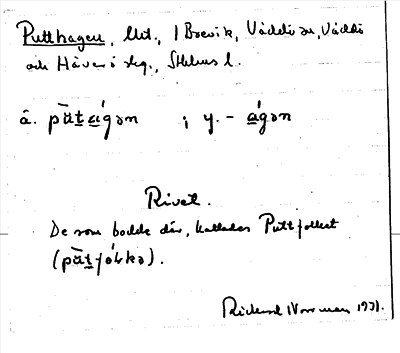 Putthagen, bbt., i Brevik, Väddö sn, Väddö
och Häverö skg., Sthlms l.
ä. pùtagən ; y. - ágən
Rivet.
De som bodde där, kallades Puttfolket
(pùtfolkə).
Rickard Norrman 1931.